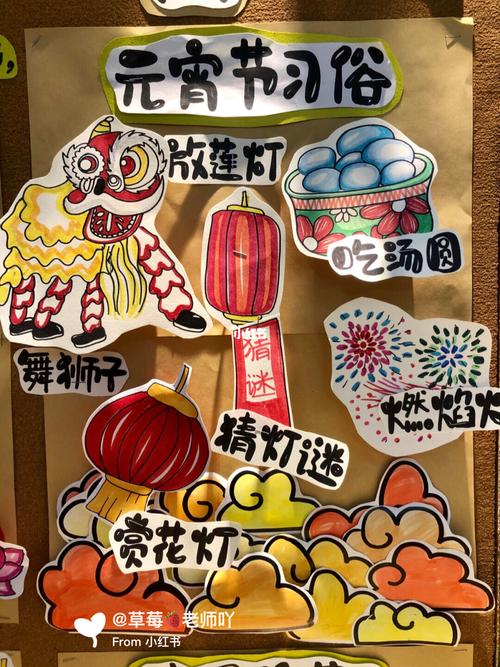 元宵节习俗
放莲灯
吃汤圆
小红书
猜
谜
舞狮子
燃焰火
猜灯谜
赏花灯
@草莓🍓老师吖
From 小红书